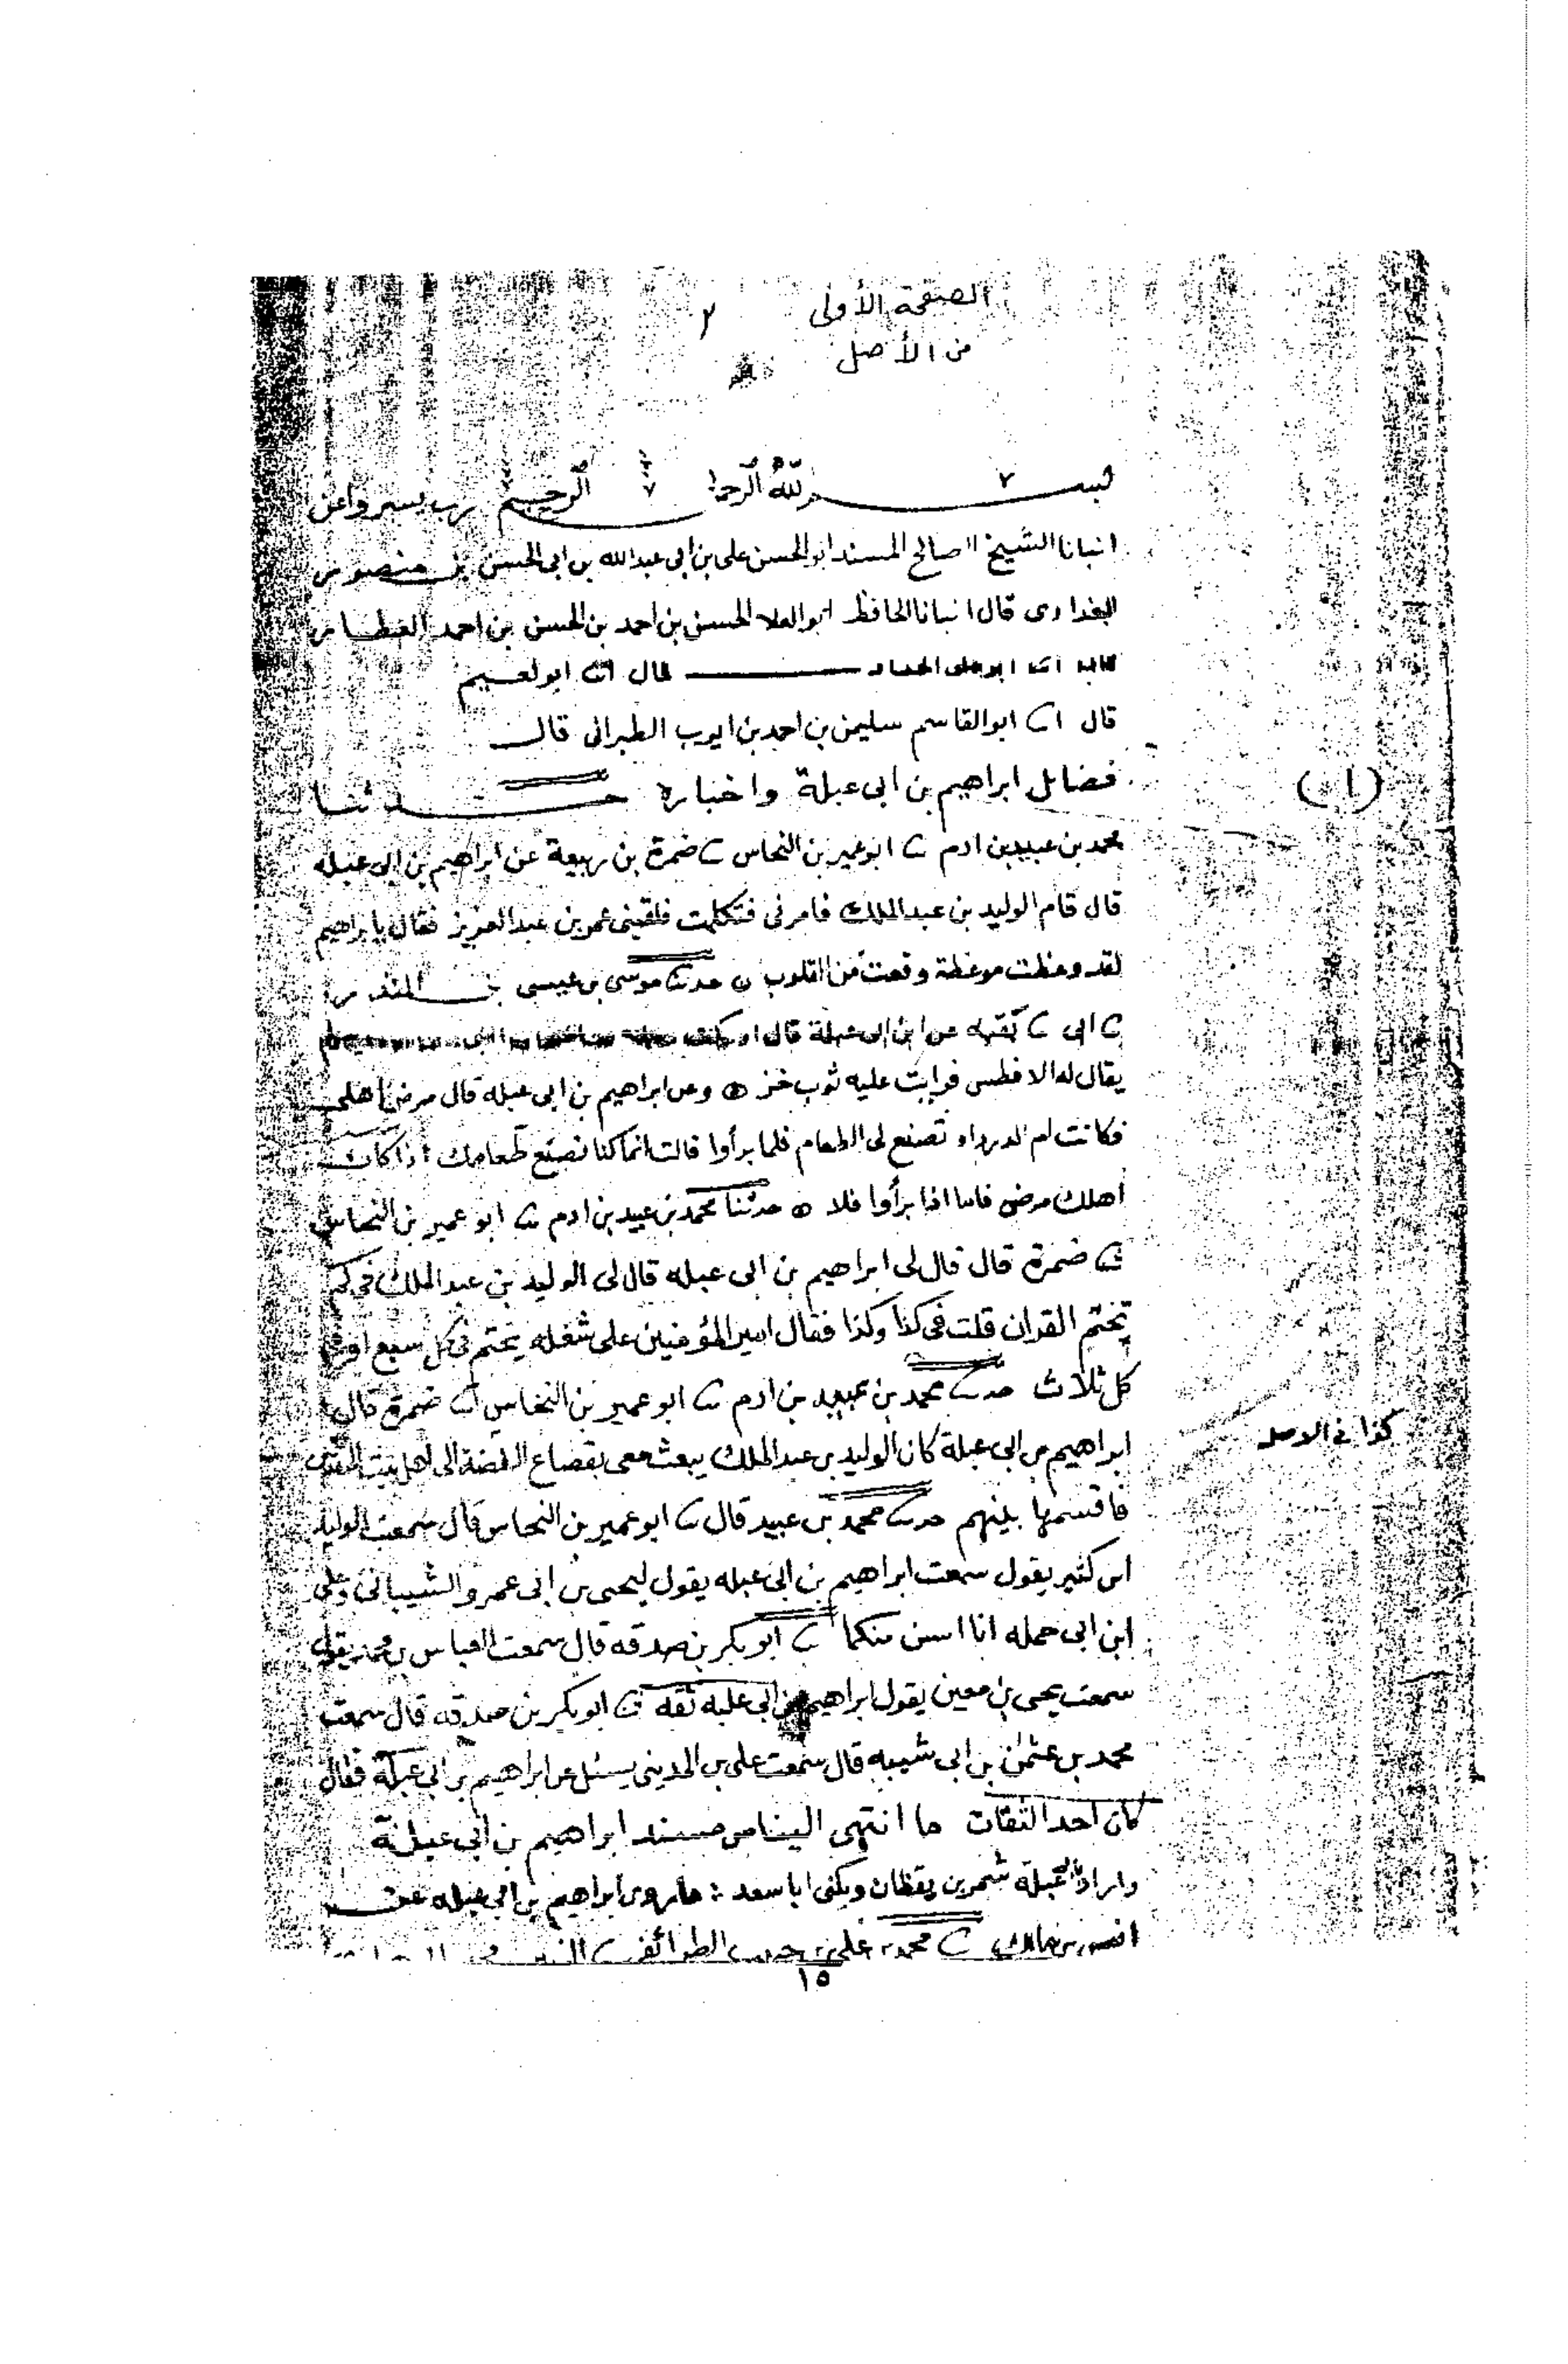 الصفحة الأولى
من الأصل
٢
بسم الله الرحمن الرحيم رب يسر واعن
انبانا الشيخ الصالح المسند ابو الحسن على بن ابى عبد الله بن ابى الحسن بن منصور
البغدادى قال انبانا الحافظ ابو العلا الحسن بن احمد بن الحسن بن احمد العطار
انا ابو على الحداد قال انا ابو نعيم
قال انا ابو القاسم سليمن بن احمد بن ايوب الطبرانى قال
فضايل ابراهيم بن ابى عبلة واخباره حدثنا
(١)
محمد بن عبيد بن ادم ثنا ابو عمير بن النحاس ثنا ضمرة بن ربيعة عن ابراهيم بن ابى عبله
قال قام الوليد بن عبد الملك فامرنى فتكلمت فلقينى عمر بن عبد العزيز فقال يابراهيم
لقد وعظت موعظة وقعت من القلوب ○ حدثنا موسى بن عيسى بن المنذر
ثنا ابى ثنا بقيه عن ابن ابى عبلة قال
يقال له الافطس فرايت عليه ثوب خز ○ وعن ابراهيم بن ابى عبله قال مرض اهلى
فكانت ام الدرداء تصنع لى الطعام فلما برأوا قالت انما كنا نصنع طعامك اذا كان
اهلك مرضى فاما اذا برأوا فلا ○ حدثنا محمد بن عبيد بن ادم ثنا ابو عمير بن النحاس
ثنا ضمرة قال قال لى ابراهيم بن ابى عبله قال لى الوليد بن عبد الملك فى كم
تختم القران قلت فى كذا وكذا فقال امير المؤمنين على شغله يختم فى كل سبع او
كل ثلاث حدثنا محمد بن عبيد بن ادم ثنا ابو عمير بن النحاس ثنا ضمرة قال
كذا فى الاصل
ابراهيم بن ابى عبلة كان الوليد بن عبد الملك يبعث معى بقصاع الفضة الى اهل بيت المقدس
فاقسمها بينهم حدثنا محمد بن عبيد قال ثنا ابو عمير بن النحاس قال سمعت الوليد
ابن كثير يقول سمعت ابراهيم بن ابى عبله يقول ليحيى بن ابى عمرو الشيبانى وعلى
ابن ابى حمله انا اسن منكما ثنا ابو بكر بن صدقه قال سمعت العباس بن محمد يقول
سمعت يحيى بن معين يقول ابراهيم بن ابى علبه ثقه ثنا ابو بكر بن صدقه قال سمعت
محمد بن عثمن بن ابى شيبه قال سمعت على بن المدينى يسئل عن ابراهيم بن ابى عبلة فقال
كان احد الثقات ما انتهى الينا من مسند ابراهيم بن ابى عبلة
شمر بن يقظان ويكنى ابا سعد : ما روى ابراهيم بن ابى عبله عن
انس بن مالك ثنا محمد بن على بن الطرائفى ثنا
١٥